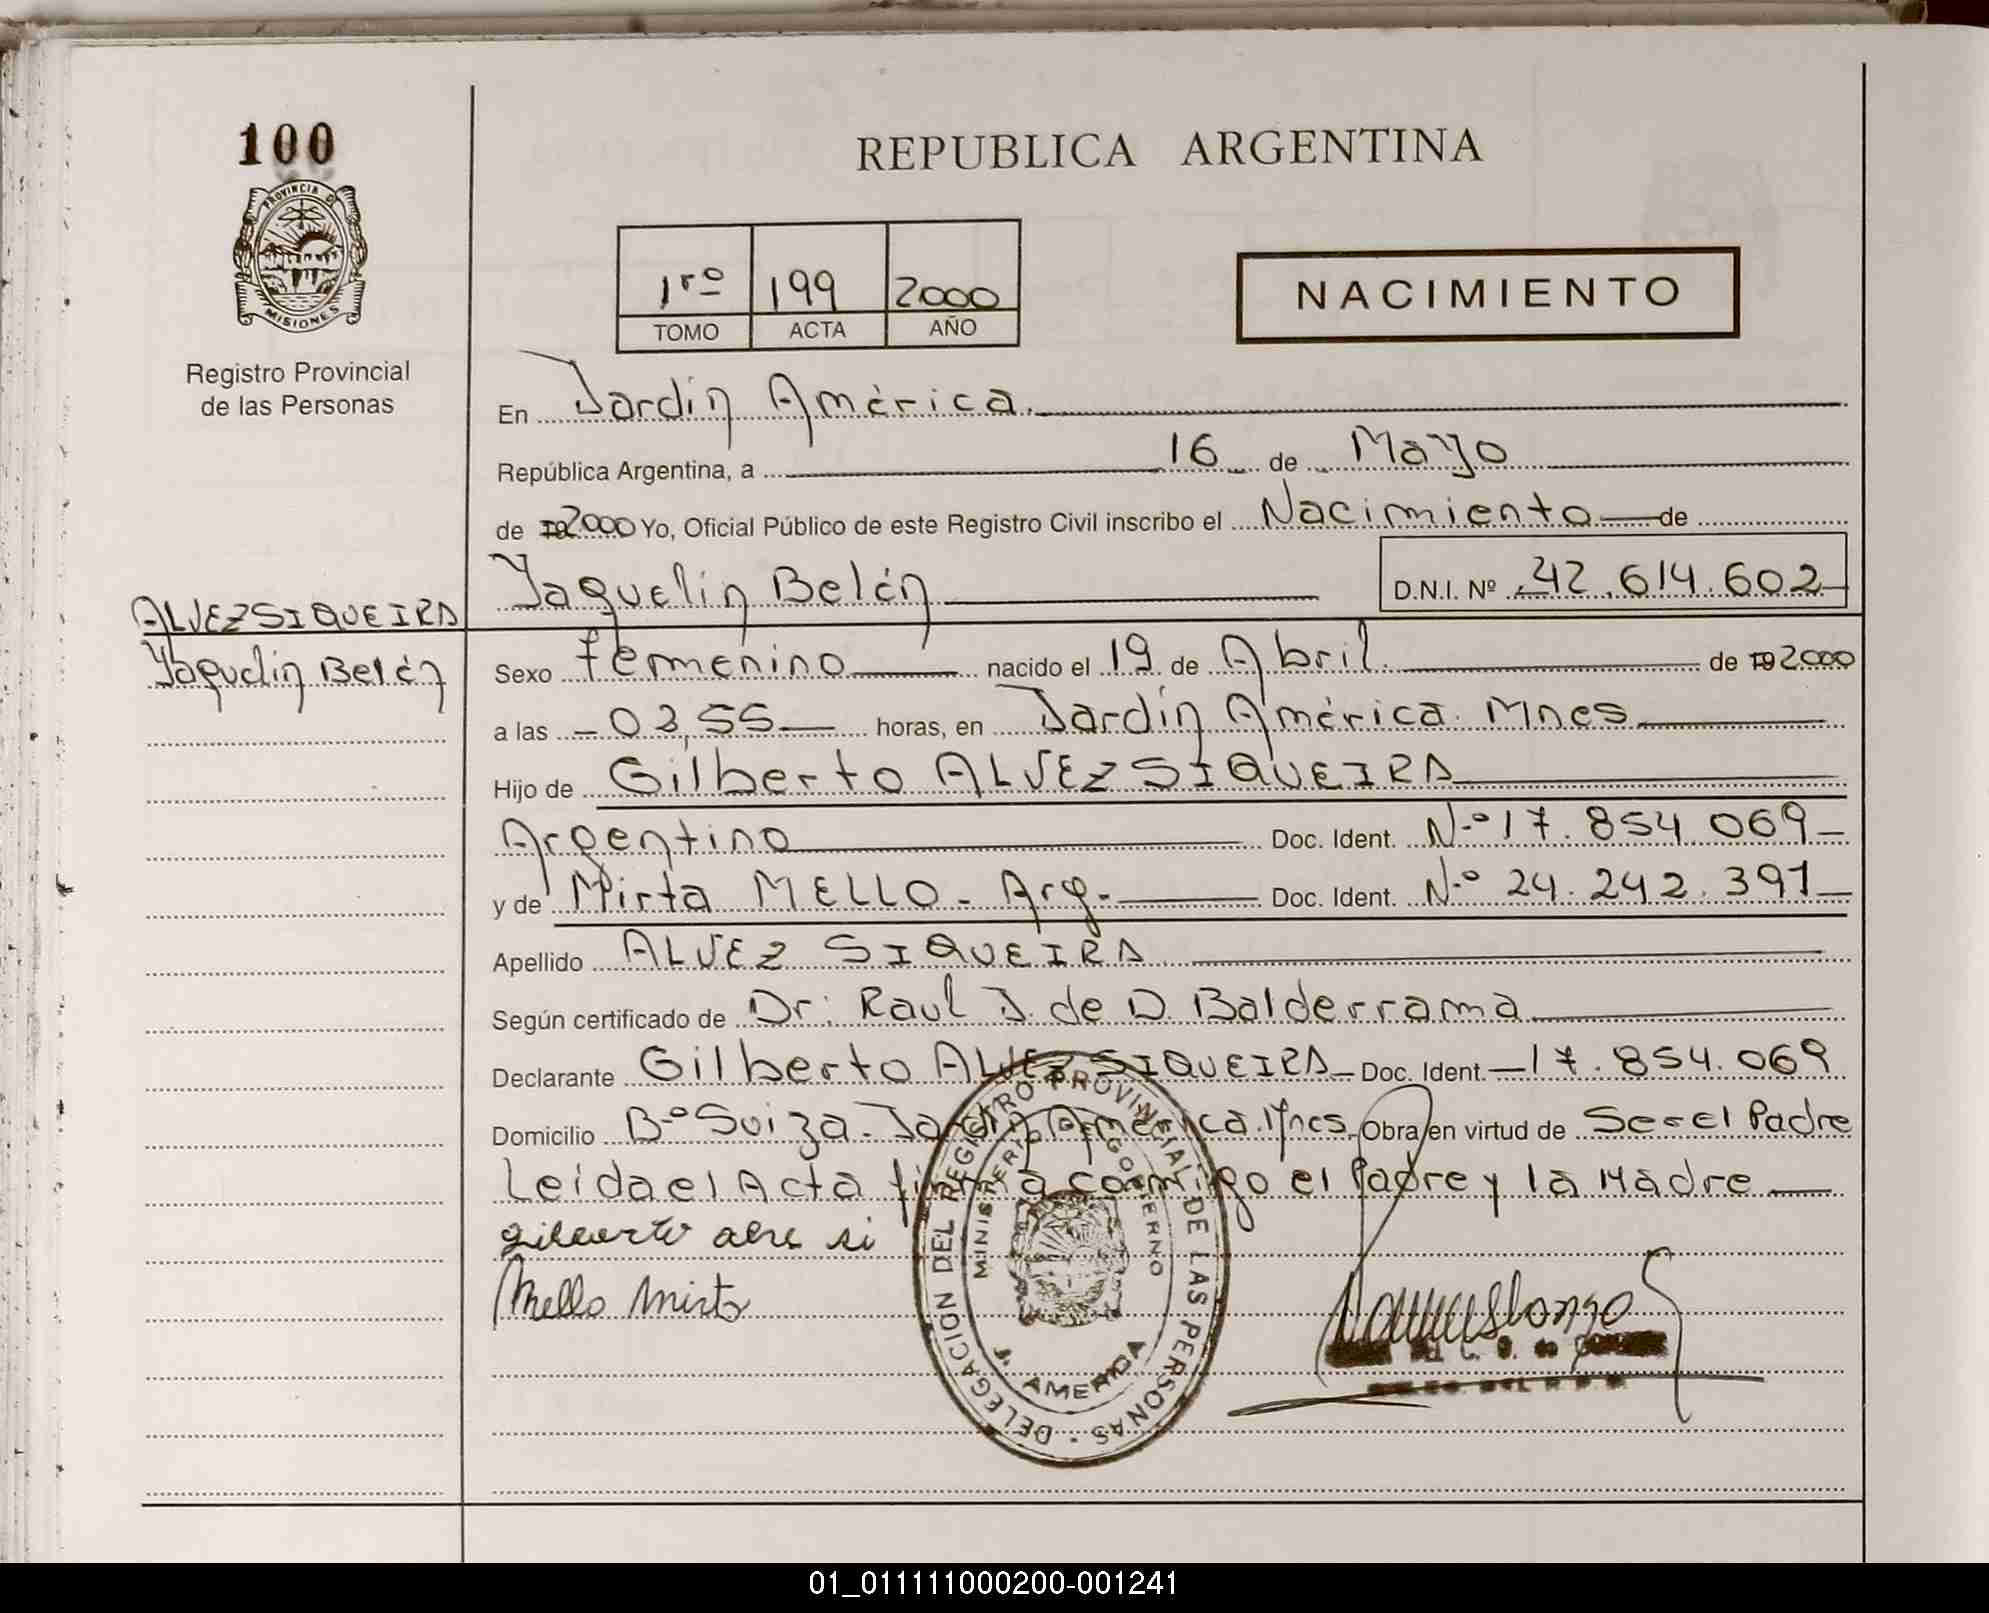 100
PROVINCIA DE
MISIONES
Registro Provincial
de las Personas
REPUBLICA ARGENTINA
1ro 199 2000
TOMO ACTA AÑO
NACIMIENTO
En Jardín América.
República Argentina, a 16 de Mayo
de 19 2000 Yo, Oficial Público de este Registro Civil inscribo el Nacimiento de
Yaquelin Belén D.N.I. Nº 42.614.602
ALVEZ SIQUEIRA
Yaquelin Belén
Sexo femenino nacido el 19 de Abril de 19 2000
a las 03,55 horas, en Jardín América. Mnes
Hijo de Gilberto ALVEZ SIQUEIRA
Argentino Doc. Ident. N-º 17.854.069
y de Mirta MELLO - Arg. Doc. Ident. N-º 24.242.391
Apellido ALVEZ SIQUEIRA
Según certificado de Dr: Raul J. de D. Balderrama
Declarante Gilberto ALVEZ SIQUEIRA Doc. Ident. 17.854.069
Domicilio B-º Suiza. Jardín América. Mnes. Obra en virtud de Ser el Padre
Leida el Acta firma conmigo el Padre y la Madre
Gilberto alve si
Mello Mirta
DELEGACIÓN DEL REGISTRO PROVINCIAL DE LAS PERSONAS
MINISTERIO DE GOBIERNO
J. AMERICA
01_011111000200-001241